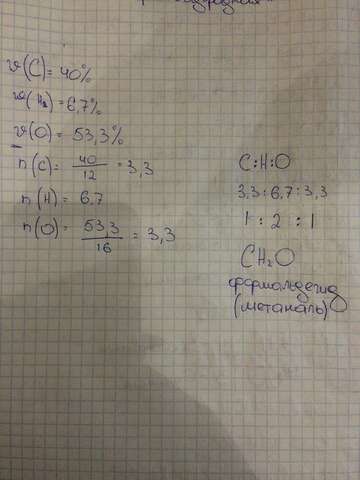 ν(C) = 40%
ν(H₂) = 6,7%
ν(O) = 53,3%
n(C) = 40/12 = 3,3
n(H) = 6.7
n(O) = 53,3/16 = 3,3
C:H:O
3,3 : 6,7 : 3,3
1 : 2 : 1
CH₂O
формальдегид
(метаналь)